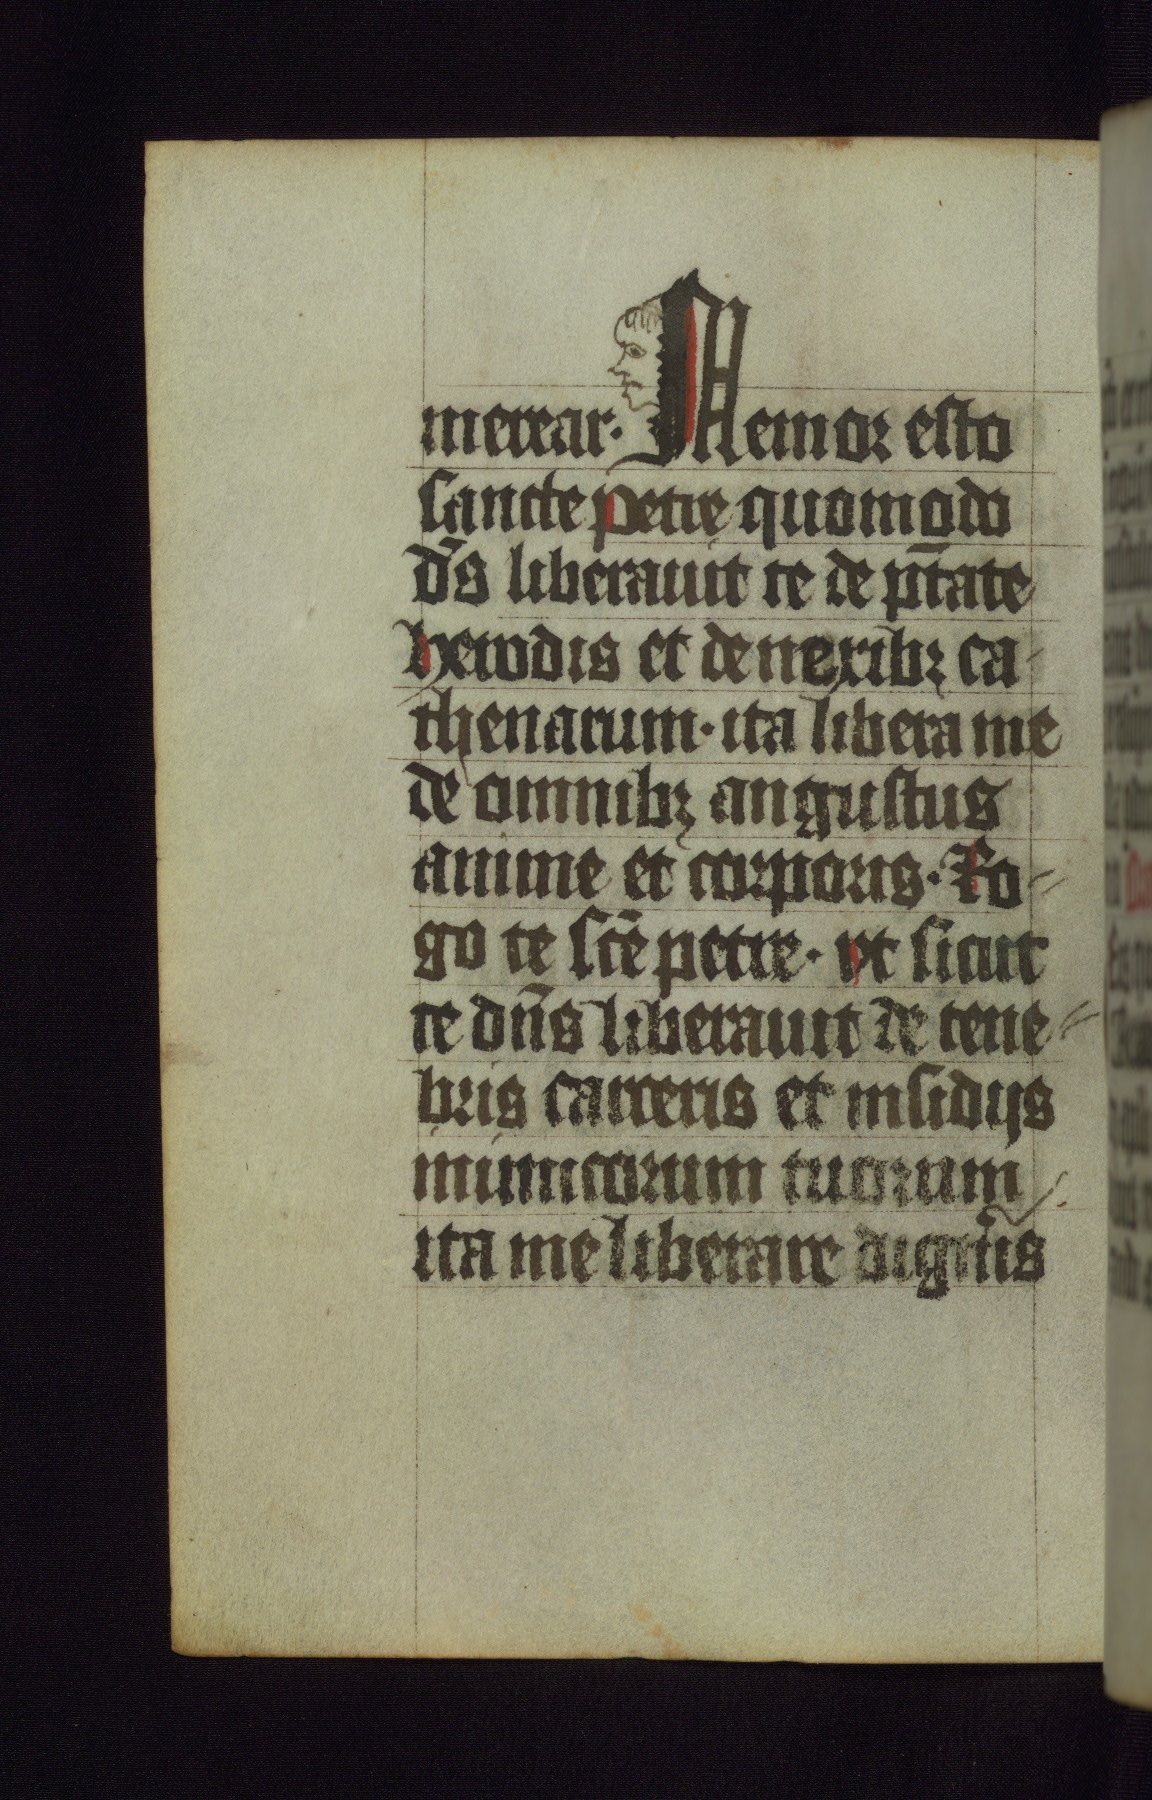 merear. Memor esto
sancte petre quomodo
dn̄s liberauit te de pt̄ate
herodis et de nexibꝫ ca-
thenarum. ita libera me
de omnibꝫ angustiis
anime et corporis. Ro-
go te sc̄e petre. vt sicut
te dn̄s liberauit de tene-
bris carceris et insidijs
inimicorum tuorum
ita me liberare digneris